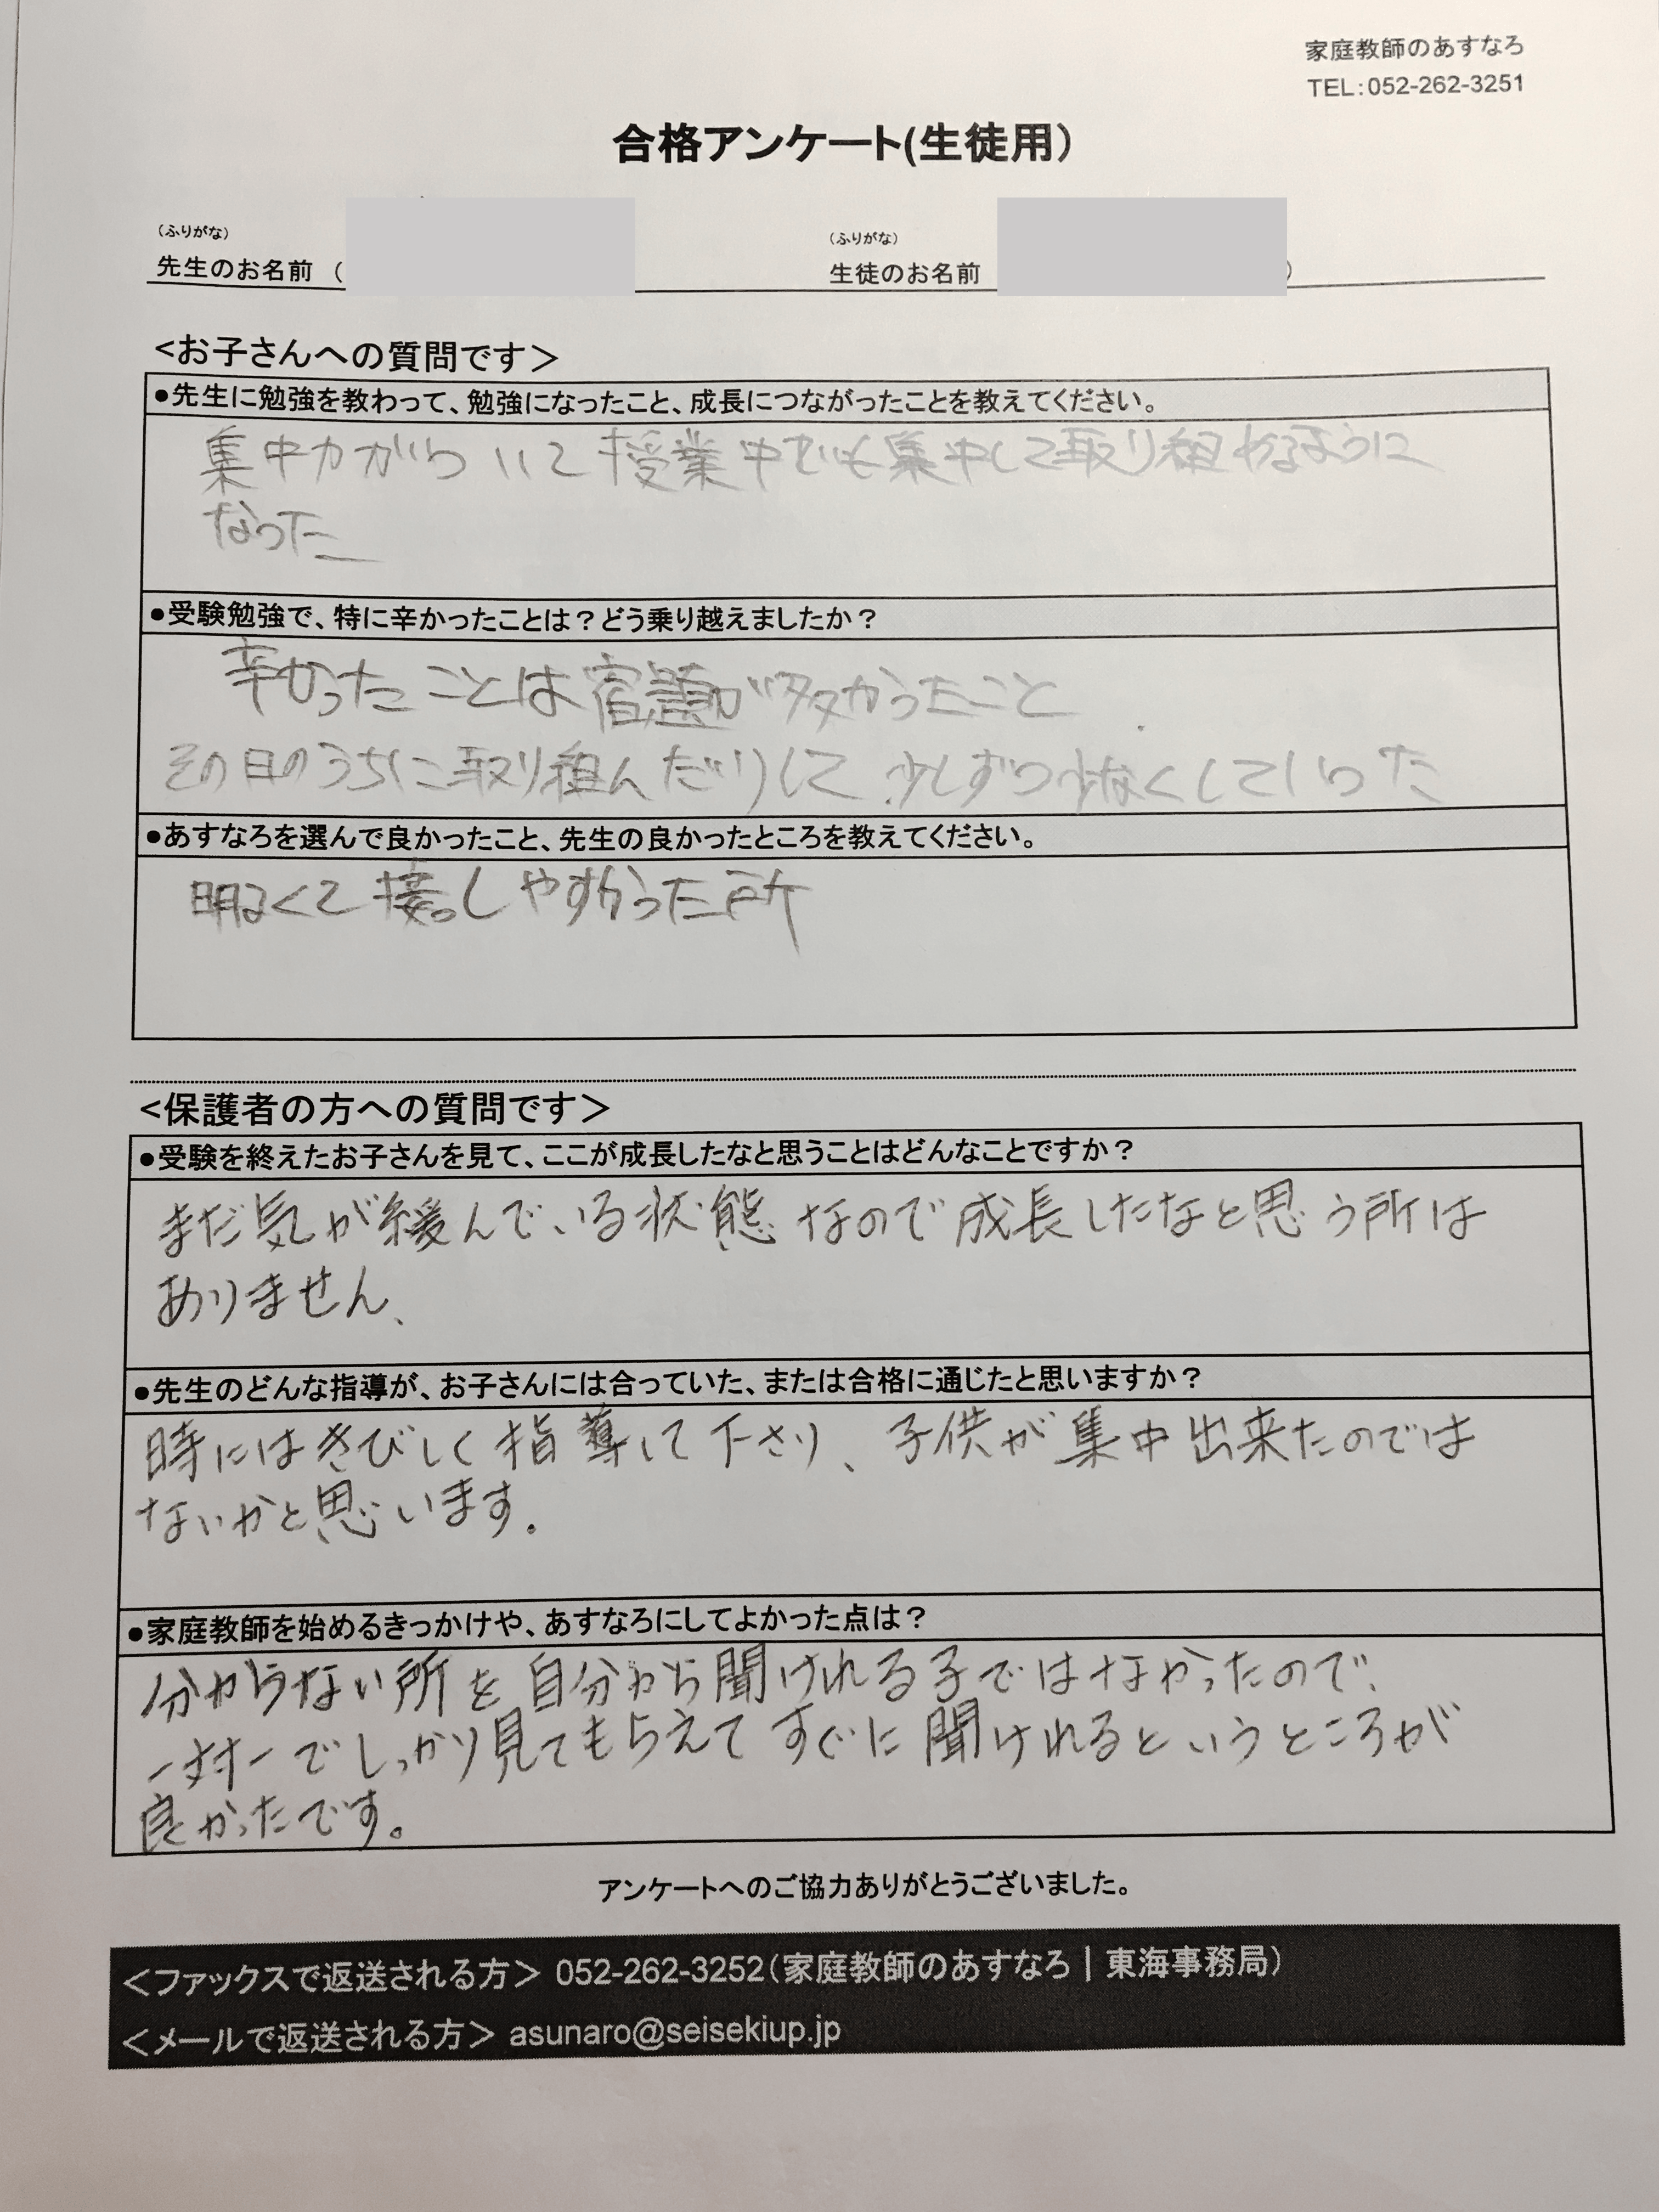 家庭教師のあすなろ
TEL:052-262-3251
合格アンケート(生徒用)
(ふりがな)
(ふりがな)
先生のお名前 (
生徒のお名前 )
<お子さんへの質問です>
●先生に勉強を教わって、勉強になったこと、成長につながったことを教えてください。
集中力がついて授業中でも集中して取り組めるように
なった
●受験勉強で、特に辛かったことは?どう乗り越えましたか?
辛かったことは宿題が多かったこと
その日のうちに取り組んだりして少しずつ少なくしていった
●あすなろを選んで良かったこと、先生の良かったところを教えてください。
明るくて接しやすかった所
<保護者の方への質問です>
●受験を終えたお子さんを見て、ここが成長したなと思うことはどんなことですか?
まだ気が緩んでいる状態なので成長したなと思う所は
ありません、
●先生のどんな指導が、お子さんには合っていた、または合格に通じたと思いますか?
時にはきびしく指導して下さり、子供が集中出来たのでは
ないかと思います。
●家庭教師を始めるきっかけや、あすなろにしてよかった点は?
分からない所を自分から聞けれる子ではなかったので、
一対一でしっかり見てもらえてすぐに聞けれるというところが
良かったです。
アンケートへのご協力ありがとうございました。
<ファックスで返送される方> 052-262-3252(家庭教師のあすなろ|東海事務局)
<メールで返送される方> asunaro@seisekiup.jp